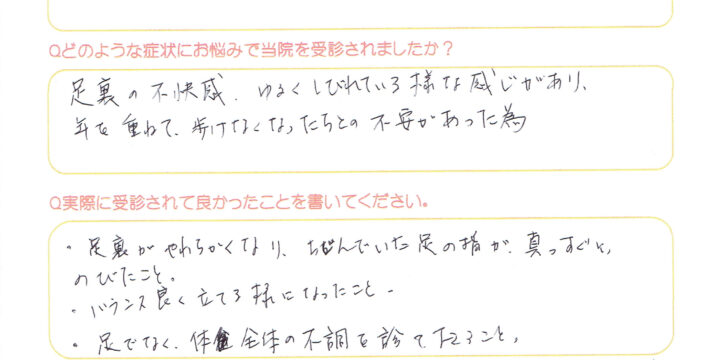 Qどのような症状にお悩みで当院を受診されましたか？
足裏の不快感、ゆるくしびれている様な感じがあり、
年を重ねて、歩けなくなったらとの不安があった為
Q実際に受診されて良かったことを書いてください。
・足裏がやわらかくなり、ちぢんでいた足の指が、真っすぐと、
のびたこと。
・バランス良く立てる様になったこと。
・足でなく、体全体の不調を診て下さること。